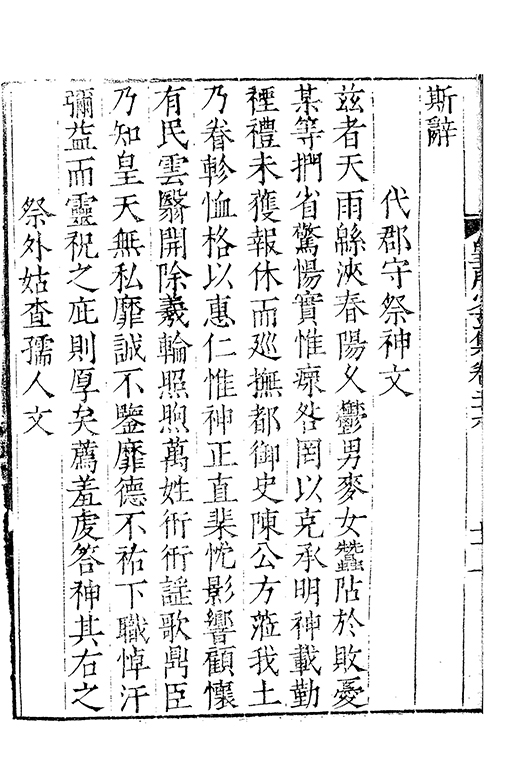 斯辭
代郡守祭神文
茲者天雨緜浹春陽乂鬱男麥女蠶阽於敗憂
某等捫省驚惕實惟瘝咎罔以克承明神載勤
禋禮未獲報休而巡撫都御史陳公方蒞我土
乃眷軫恤格以惠仁惟神正直棐忱影響顧懷
有民雲翳開除羲輪照煦萬姓衎衎謡歌鼎臣
乃知皇天無私靡誠不鑒靡德不祐下職悼汗
彌益而靈祝之庇則厚矣薦羞虔答神其右之
祭外姑查孺人文